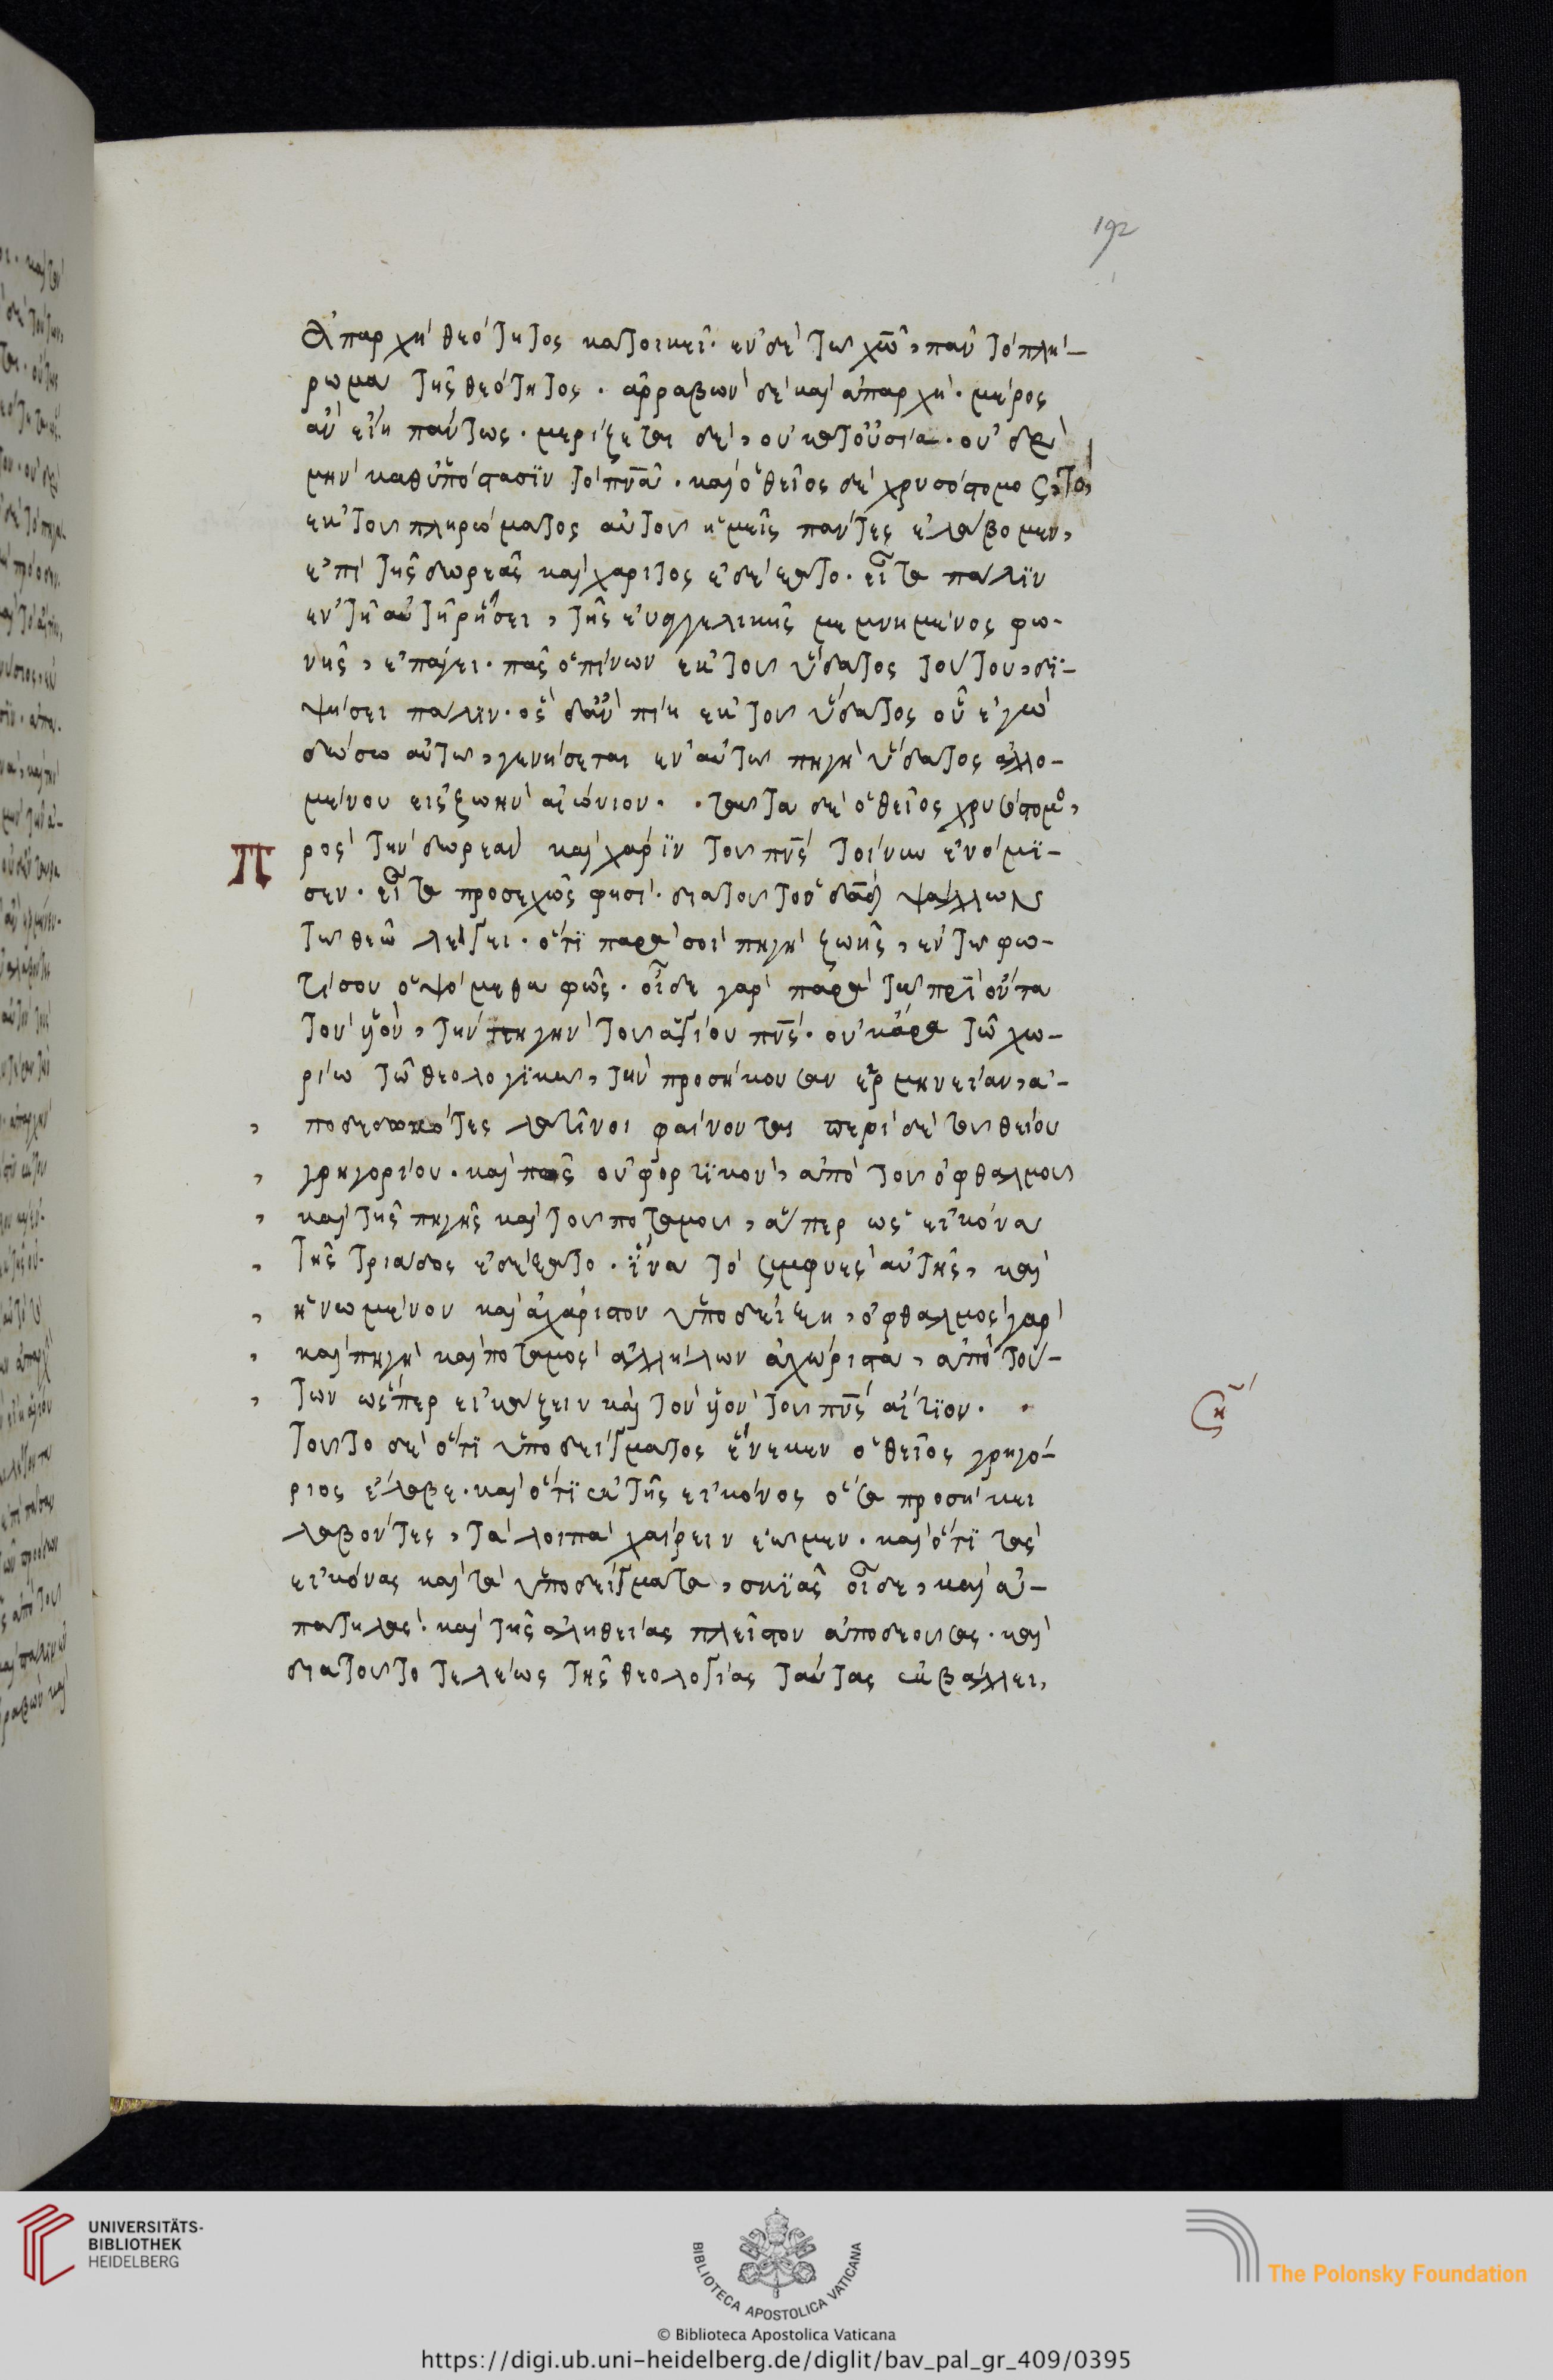 192
ἀπαρχὴ θεότητος κατοικεῖ· ἐν δὲ τῶ χῶ, πᾶν τὸ πλή-
ρωμα τῆς θεότητος. ἀρραβὼν δὲ καὶ ἀπαρχὴ. μέρος
ἂν εἴη πάντως. μερίζεται δὲ, οὐ κατ' οὐσίαν. οὐδὲ
μὴν καθ' ὑπόστασϊν τὸ πνᾶ. καὶ ὁ θεῖος δὲ χρυσόστομος, τὸ,
ἐκ τοῦ πληρώματος αὐτοῦ ἡμεῖς πάντες ἐλάβομεν,
ἐπὶ τῆς δωρεᾶς καὶ χάριτος ἐδέξατο. εἶτα πάλϊν
ἐν τῆ αὐτῆ ῥήσει, τῆς εὐαγγελικῆς μεμνημένος φω-
νῆς, ἐπάγει. πᾶς ὁ πίνων ἐκ τοῦ ὕδατος τούτου, δϊ-
ψήσει πάλιν. ὃς δ' ἂν πίη ἐκ τοῦ ὕδατος οὗ ἐγὼ
δώσω αὐτῶ, γενήσεται ἐν αὐτῶ πηγὴ ὕδατος ἁλλο-
μένου εἰς ζωὴν αἰώνιον. ταῦτα δὲ ὁ θεῖος χρυσόστομο,
Π
ρὸς τὴν δωρεὰν καὶ χάρϊν τοῦ πνς τείνειν ἐνόμϊ-
σεν. εἶτα προσεχῶς φησὶ. διὰ τοῦτο ὁ δαδ ψάλλων
τῶ θεῶ λέγει. ὅτϊ παρὰ σοὶ πηγὴ ζωῆς, ἐν τῶ φω-
τί σου ὀψόμεθα φῶς. οἶδε γὰρ παρὰ τῶ πρϊ ὄντα
τὸν υἱὸν, τὴν πηγὴν τοῦ ἁγίου πνς. οὐκ ἄρα τῶ χω-
ρίω τῶ θεολογϊκῶ, τὴν προσήκουσαν ἑρμηνείαν, ἀ-
ποδεδωκότες λατῖνοι φαίνονται περὶ δὲ τοῦ θείου
γρηγορίου. καὶ πῶς οὐ φορτϊκὸν, ἀπὸ τοῦ ὀφθαλμοῦ
καὶ τῆς πηγῆς καὶ τοῦ ποταμοῦ, ἅπερ ὡς εἰκόνα
τῆς τριάδος ἐδέξατο. ἵνα τὸ συμφυὲς αὐτῆς, καὶ
ἡνωμένον καὶ ἀχώριστον ὑποδείξη, ὀφθαλμὸς γὰρ
καὶ πηγὴ καὶ ποταμὸς ἀλλήλων ἀχώριστα, ἀπὸ τού-
των ὥσπερ εἰκάζειν καὶ τὸν υἱὸν τοῦ πνς αἴτϊον.
τοῦτο δὲ ὅτϊ ὑποδείγματος ἕνεκεν ὁ θεῖος γρηγό-
ριος ἔλαβε. καὶ ὅτϊ ἐκ τῆς εἰκόνος ὅσα προσήκει
λαβόντες, τὰ λοιπὰ χαίρειν ἐῶμεν. καὶ ὅτϊ τὰς
εἰκόνας καὶ τὰ ὑποδείγματα, σκϊὰς οἶδε, καὶ ἀ-
πατηλὰς. καὶ τῆς ἀληθείας πλεῖστον ἀποδεούσας. καὶ
διὰ τοῦτο τελέως τῆς θεολογίας ταύτας ἐκβάλλει,
UNIVERSITÄTS-
BIBLIOTHEK
HEIDELBERG
BIBLIOTECA APOSTOLICA VATICANA
The Polonsky Foundation
© Biblioteca Apostolica Vaticana
https://digi.ub.uni-heidelberg.de/diglit/bav_pal_gr_409/0395